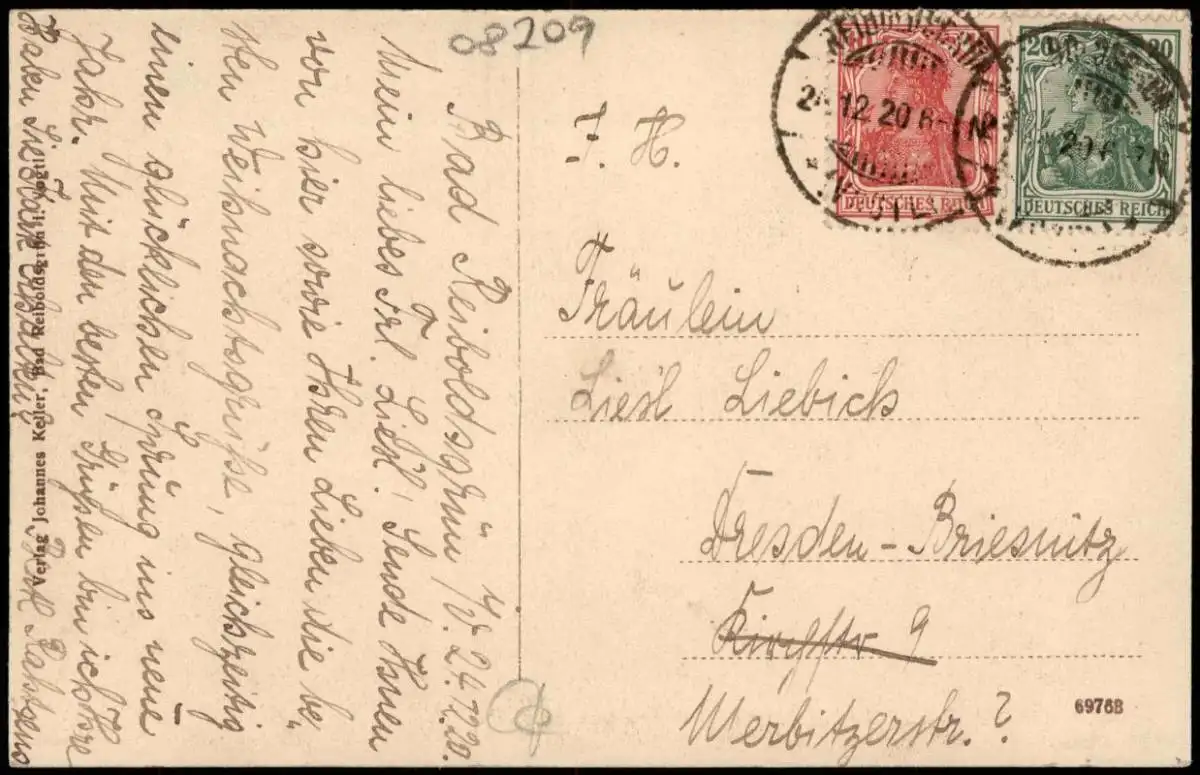 08209
Bad Reiboldsgrün i/V. 24.12.20.
Mein liebes Frl. Liesl! Sende Ihnen
von hier sowie Ihren Lieben die be-
sten Weihnachtsgrüße, gleichzeitig
einen glücklichen Sprung ins neue
Jahr. Mit den besten Grüßen bin ich Ihre
Verlag Johannes Keller, Bad Reiboldsgrün i. Vogtl.
12.20 6-
N
20
20
DEUTSCHES REICH
DEUTSCHES REICH
F. H.
Fräulein
Liesl Liebich
Dresden-Briesnitz
Kirchstr 9
Merbitzerstr. ?
6976B